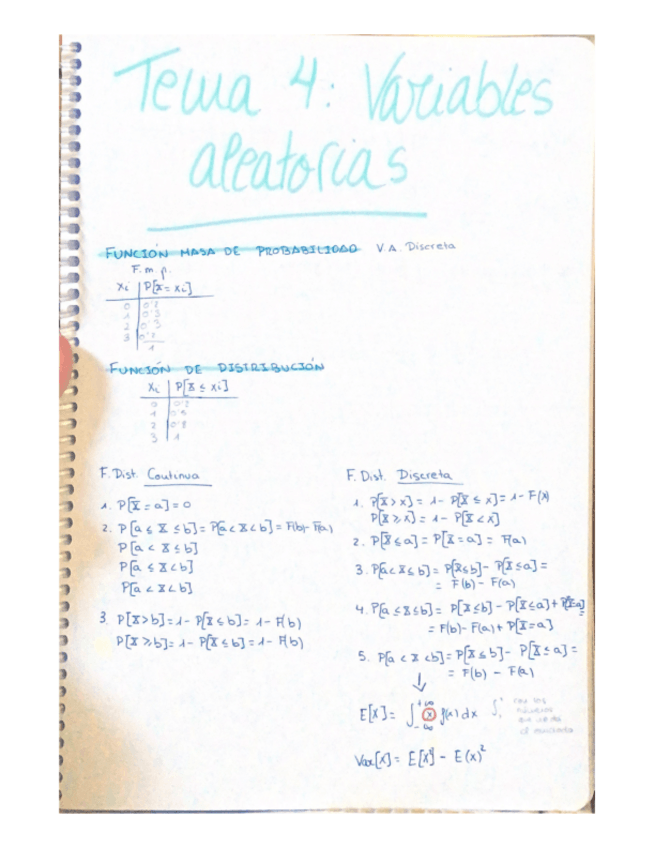 Tema 4: Variables
aleatorias
FUNCIÓN MASA DE PROBABILIDAD V.A. Discreta
F.m.p.
Xi | P[X = xi]
0 | 0'2
1 | 0'3
2 | 0'3
3 | 0'2
1
FUNCIÓN DE DISTRIBUCIÓN
Xi | P[X ≤ xi]
0 | 0'2
1 | 0'5
2 | 0'8
3 | 1
F. Dist. Continua
1. P[X = a] = 0
2. P[a ≤ X ≤ b] = P[a < X < b] = F(b) - F(a)
P[a < X ≤ b]
P[a ≤ X < b]
P[a < X < b]
3. P[X > b] = 1 - P[X ≤ b] = 1 - F(b)
P[X ≥ b] = 1 - P[X ≤ b] = 1 - F(b)
F. Dist. Discreta
1. P[X > x] = 1 - P[X ≤ x] = 1 - F(x)
P[X ≥ x] = 1 - P[X < x]
2. P[X ≤ a] = P[X = a] = F(a)
3. P[a < X ≤ b] = P[X ≤ b] - P[X ≤ a] =
= F(b) - F(a)
4. P[a ≤ X ≤ b] = P[X ≤ b] - P[X ≤ a] + P[X = a] =
= F(b) - F(a) + P[X = a]
5. P[a < X < b] = P[X ≤ b] - P[X ≤ a] =
= F(b) - F(a)
↓
E[X] = ∫ -∞ +∞ x f(x) dx
con los
números
que
el
Var[X] = E[X²] - E(x)²